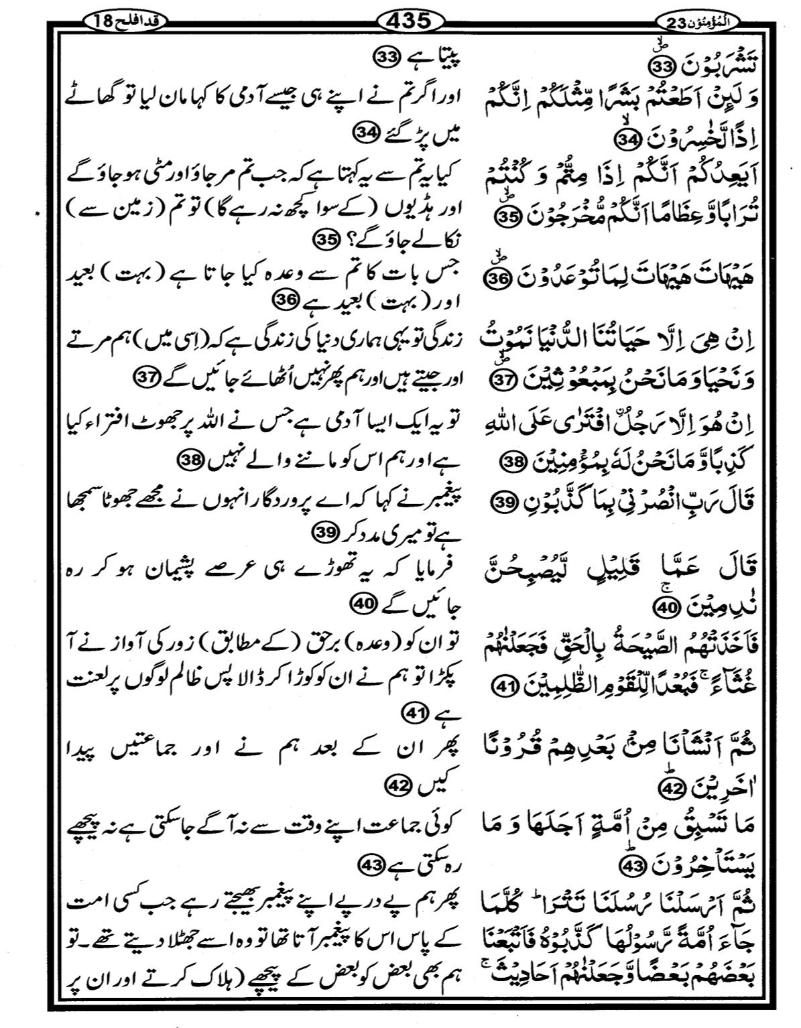 المؤمنون 23
435
قد افلح 18
تَشۡرَبُوۡنَ ۙ‏ 33
وَلَئِنۡ اَطَعۡتُمۡ بَشَرًا مِّثۡلَكُمۡ اِنَّكُمۡ
اِذًا لَّخٰسِرُوۡنَ ۙ‏ 34
اَيَعِدُكُمۡ اَنَّكُمۡ اِذَا مِتُّمۡ وَكُنۡتُمۡ
تُرَابًا وَّعِظَامًا اَنَّكُمۡ مُّخۡرَجُوۡنَ ۙ‏ 35
هَيۡهَاتَ هَيۡهَاتَ لِمَا تُوۡعَدُوۡنَ ۙ‏ 36
اِنۡ هِىَ اِلَّا حَيَاتُنَا الدُّنۡيَا نَمُوۡتُ
وَنَحۡيَا وَمَا نَحۡنُ بِمَبۡعُوۡثِيۡنَ ۙ‏ 37
اِنۡ هُوَ اِلَّا رَجُلُ ۨافۡتَرٰى عَلَى اللّٰهِ
كَذِبًا وَّمَا نَحۡنُ لَهٗ بِمُؤۡمِنِيۡنَ 38
قَالَ رَبِّ انْصُرۡنِىۡ بِمَا كَذَّبُوۡنِ 39
قَالَ عَمَّا قَلِيۡلٍ لَّيُصۡبِحُنَّ
نٰدِمِيۡنَ ۚ‏ 40
فَاَخَذَتۡهُمُ الصَّيۡحَةُ بِالۡحَـقِّ فَجَعَلۡنٰهُمۡ
غُثَآءً ۚ فَبُعۡدًا لِّـلۡقَوۡمِ الظّٰلِمِيۡنَ 41
ثُمَّ اَنۡشَاۡنَا مِنۡۢ بَعۡدِهِمۡ قُرُوۡنًا
اٰخَرِيۡنَ ؕ‏ 42
مَا تَسۡبِقُ مِنۡ اُمَّةٍ اَجَلَهَا وَمَا
يَسۡتَاۡخِرُوۡنَ ؕ‏ 43
ثُمَّ اَرۡسَلۡنَا رُسُلَنَا تَتۡرَا ؕ كُلَّمَا
جَآءَ اُمَّةً رَّسُوۡلُهَا كَذَّبُوۡهُ فَاَتۡبَـعۡنَا
بَعۡضَهُمۡ بَعۡضًا وَّجَعَلۡنٰهُمۡ اَحَادِيۡثَ ۚ
پیتا ہے 33
اور اگر تم نے اپنے ہی جیسے آدمی کا کہا مان لیا تو گھاٹے
میں پڑ گئے 34
کیا یہ تم سے یہ کہتا ہے کہ جب تم مر جاؤ اور مٹی ہو جاؤ گے
اور ہڈیوں (کے سوا کچھ نہ رہے گا) تو تم (زمین سے)
نکالے جاؤ گے؟ 35
جس بات کا تم سے وعدہ کیا جاتا ہے (بہت) بعید
اور (بہت) بعید ہے 36
زندگی تو یہی ہماری دنیا کی زندگی ہے کہ (اِسی میں) ہم مرتے
اور جیتے ہیں اور ہم پھر نہیں اُٹھائے جائیں گے 37
تو یہ ایک ایسا آدمی ہے جس نے اللہ پر جھوٹ افتراء کیا
ہے اور ہم اس کو ماننے والے نہیں 38
پیغمبر نے کہا کہ اے پروردگار انہوں نے مجھے جھوٹا سمجھا
ہے تو میری مدد کر 39
فرمایا کہ یہ تھوڑے ہی عرصے پشیمان ہو کر رہ
جائیں گے 40
تو ان کو (وعدہ) برحق (کے مطابق) زور کی آواز نے آ
پکڑا تو ہم نے ان کو کوڑا کر ڈالا پس ظالم لوگوں پر لعنت
ہے 41
پھر ان کے بعد ہم نے اور جماعتیں پیدا
کیں 42
کوئی جماعت اپنے وقت سے نہ آگے جا سکتی ہے نہ پیچھے
رہ سکتی ہے 43
پھر ہم پے در پے اپنے پیغمبر بھیجتے رہے جب کسی امت
کے پاس اس کا پیغمبر آتا تھا تو وہ اسے جھٹلا دیتے تھے۔ تو
ہم بھی بعض کو بعض کے پیچھے (ہلاک کرتے اور ان پر